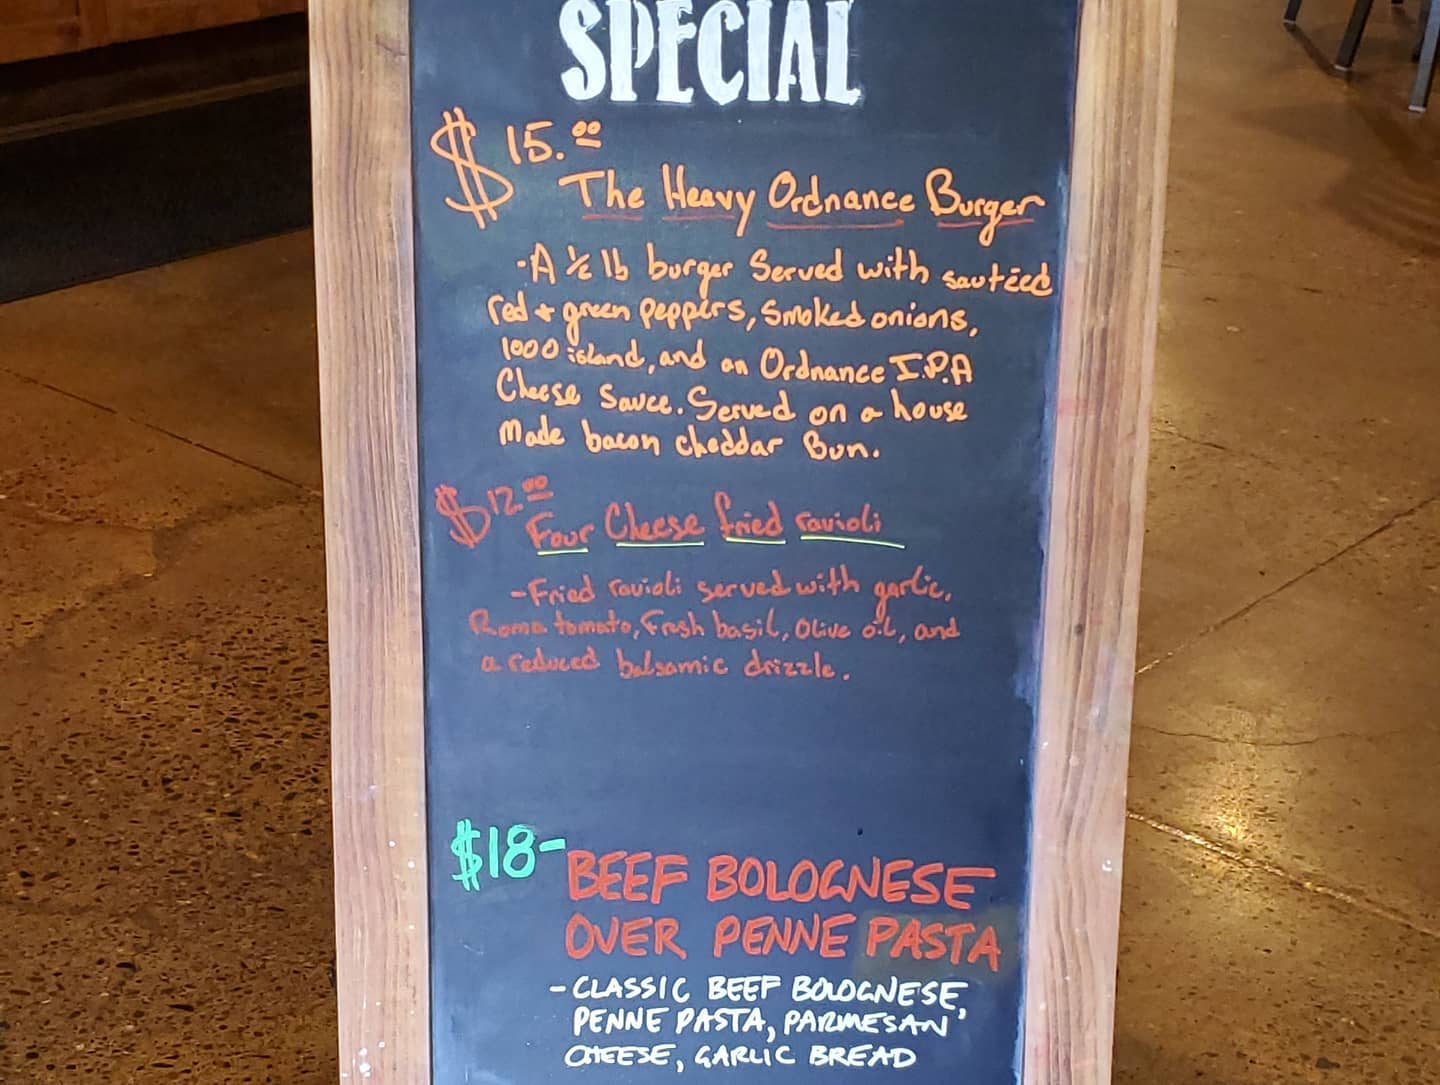 SPECIAL
$15.00
The Heavy Ordnance Burger
-A ½ lb burger Served with sautéed
red + green peppers, smoked onions,
1000 island, and an Ordnance I.P.A
Cheese Sauce. Served on a house
Made bacon cheddar Bun.
$12.00
Four Cheese fried ravioli
-Fried ravioli served with garlic,
Roma tomato, Fresh basil, Olive oil, and
a reduced balsamic drizzle.
$18-
BEEF BOLOGNESE
OVER PENNE PASTA
-CLASSIC BEEF BOLOGNESE,
PENNE PASTA, PARMESAN
CHEESE, GARLIC BREAD